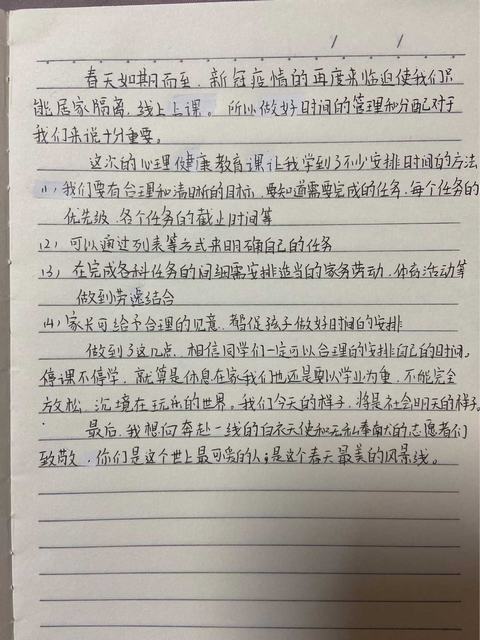 / /
春天如期而至,新冠疫情的再度来临迫使我们只
能居家隔离,线上上课。所以做好时间的管理和分配对于
我们来说十分重要。
这次的心理健康教育课让我学到了不少安排时间的方法
(1)我们要有合理和清晰的目标,要知道需要完成的任务,每个任务的
优先级,各个任务的截止时间等
(2)可以通过列表等方式来明确自己的任务
(3)在完成各科任务的间细需安排适当的家务劳动,体育活动等
做到劳逸结合
(4)家长可给予合理的见意,督促孩子做好时间的安排
做到了这几点,相信同学们一定可以合理的安排自己的时间。
停课不停学,就算是休息在家我们也还是要以学业为重,不能完全
放松,沉境在玩乐的世界。我们今天的样子,将是社会明天的样子。
最后,我想向奔赴一线的白衣天使和无私奉献的志愿者们
致敬,你们是这个世上最可爱的人;是这个春天最美的风景线。